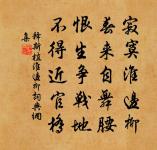 寂寞淮邊柳
春來自舞腰
恨生爭戰地
不得近官橋
釋斯植淮邊柳詞典網
集